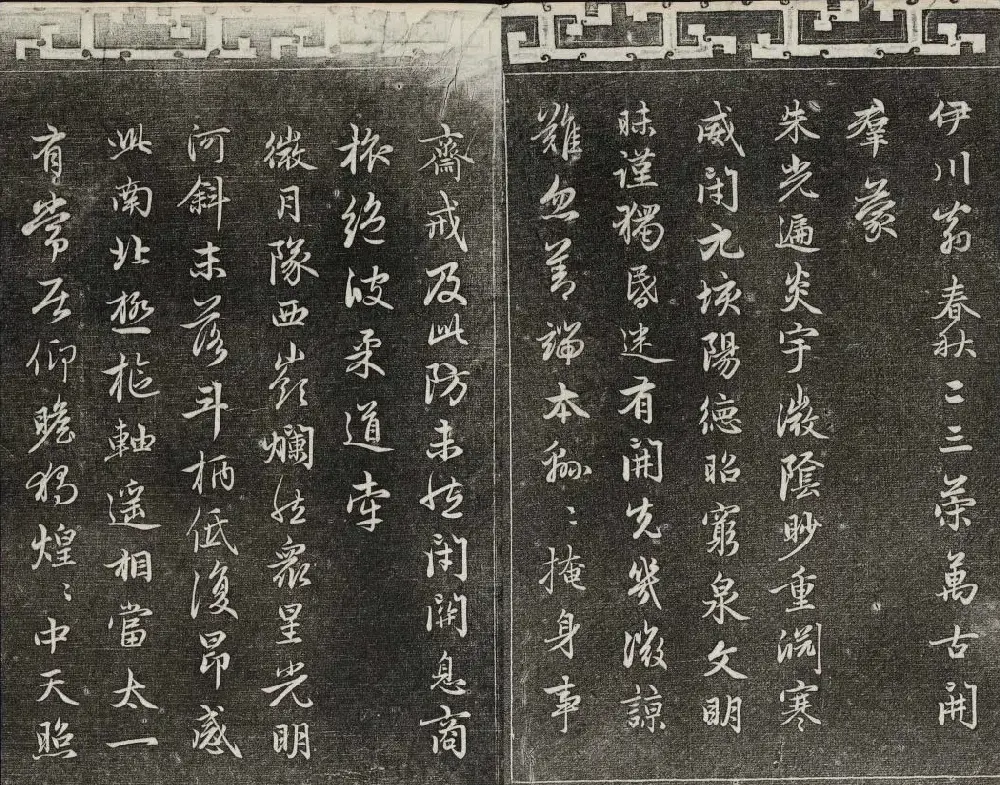 伊川翁春秋二三策萬古開
羣蒙
朱光遍炎宇微陰眇重淵寒
威閉九垓陽德昭窮泉文明
昧謹獨昏迷有開先幾微諒
難忽善端本緜〻掩身事
齋戒及此防未然閉關息商
旅絕彼柔道牽
微月隊西嶺爛然衆星光明
河斜未落斗柄低復昂感
此南北極樞軸遥相當太一
有常居仰瞻獨煌〻中天照